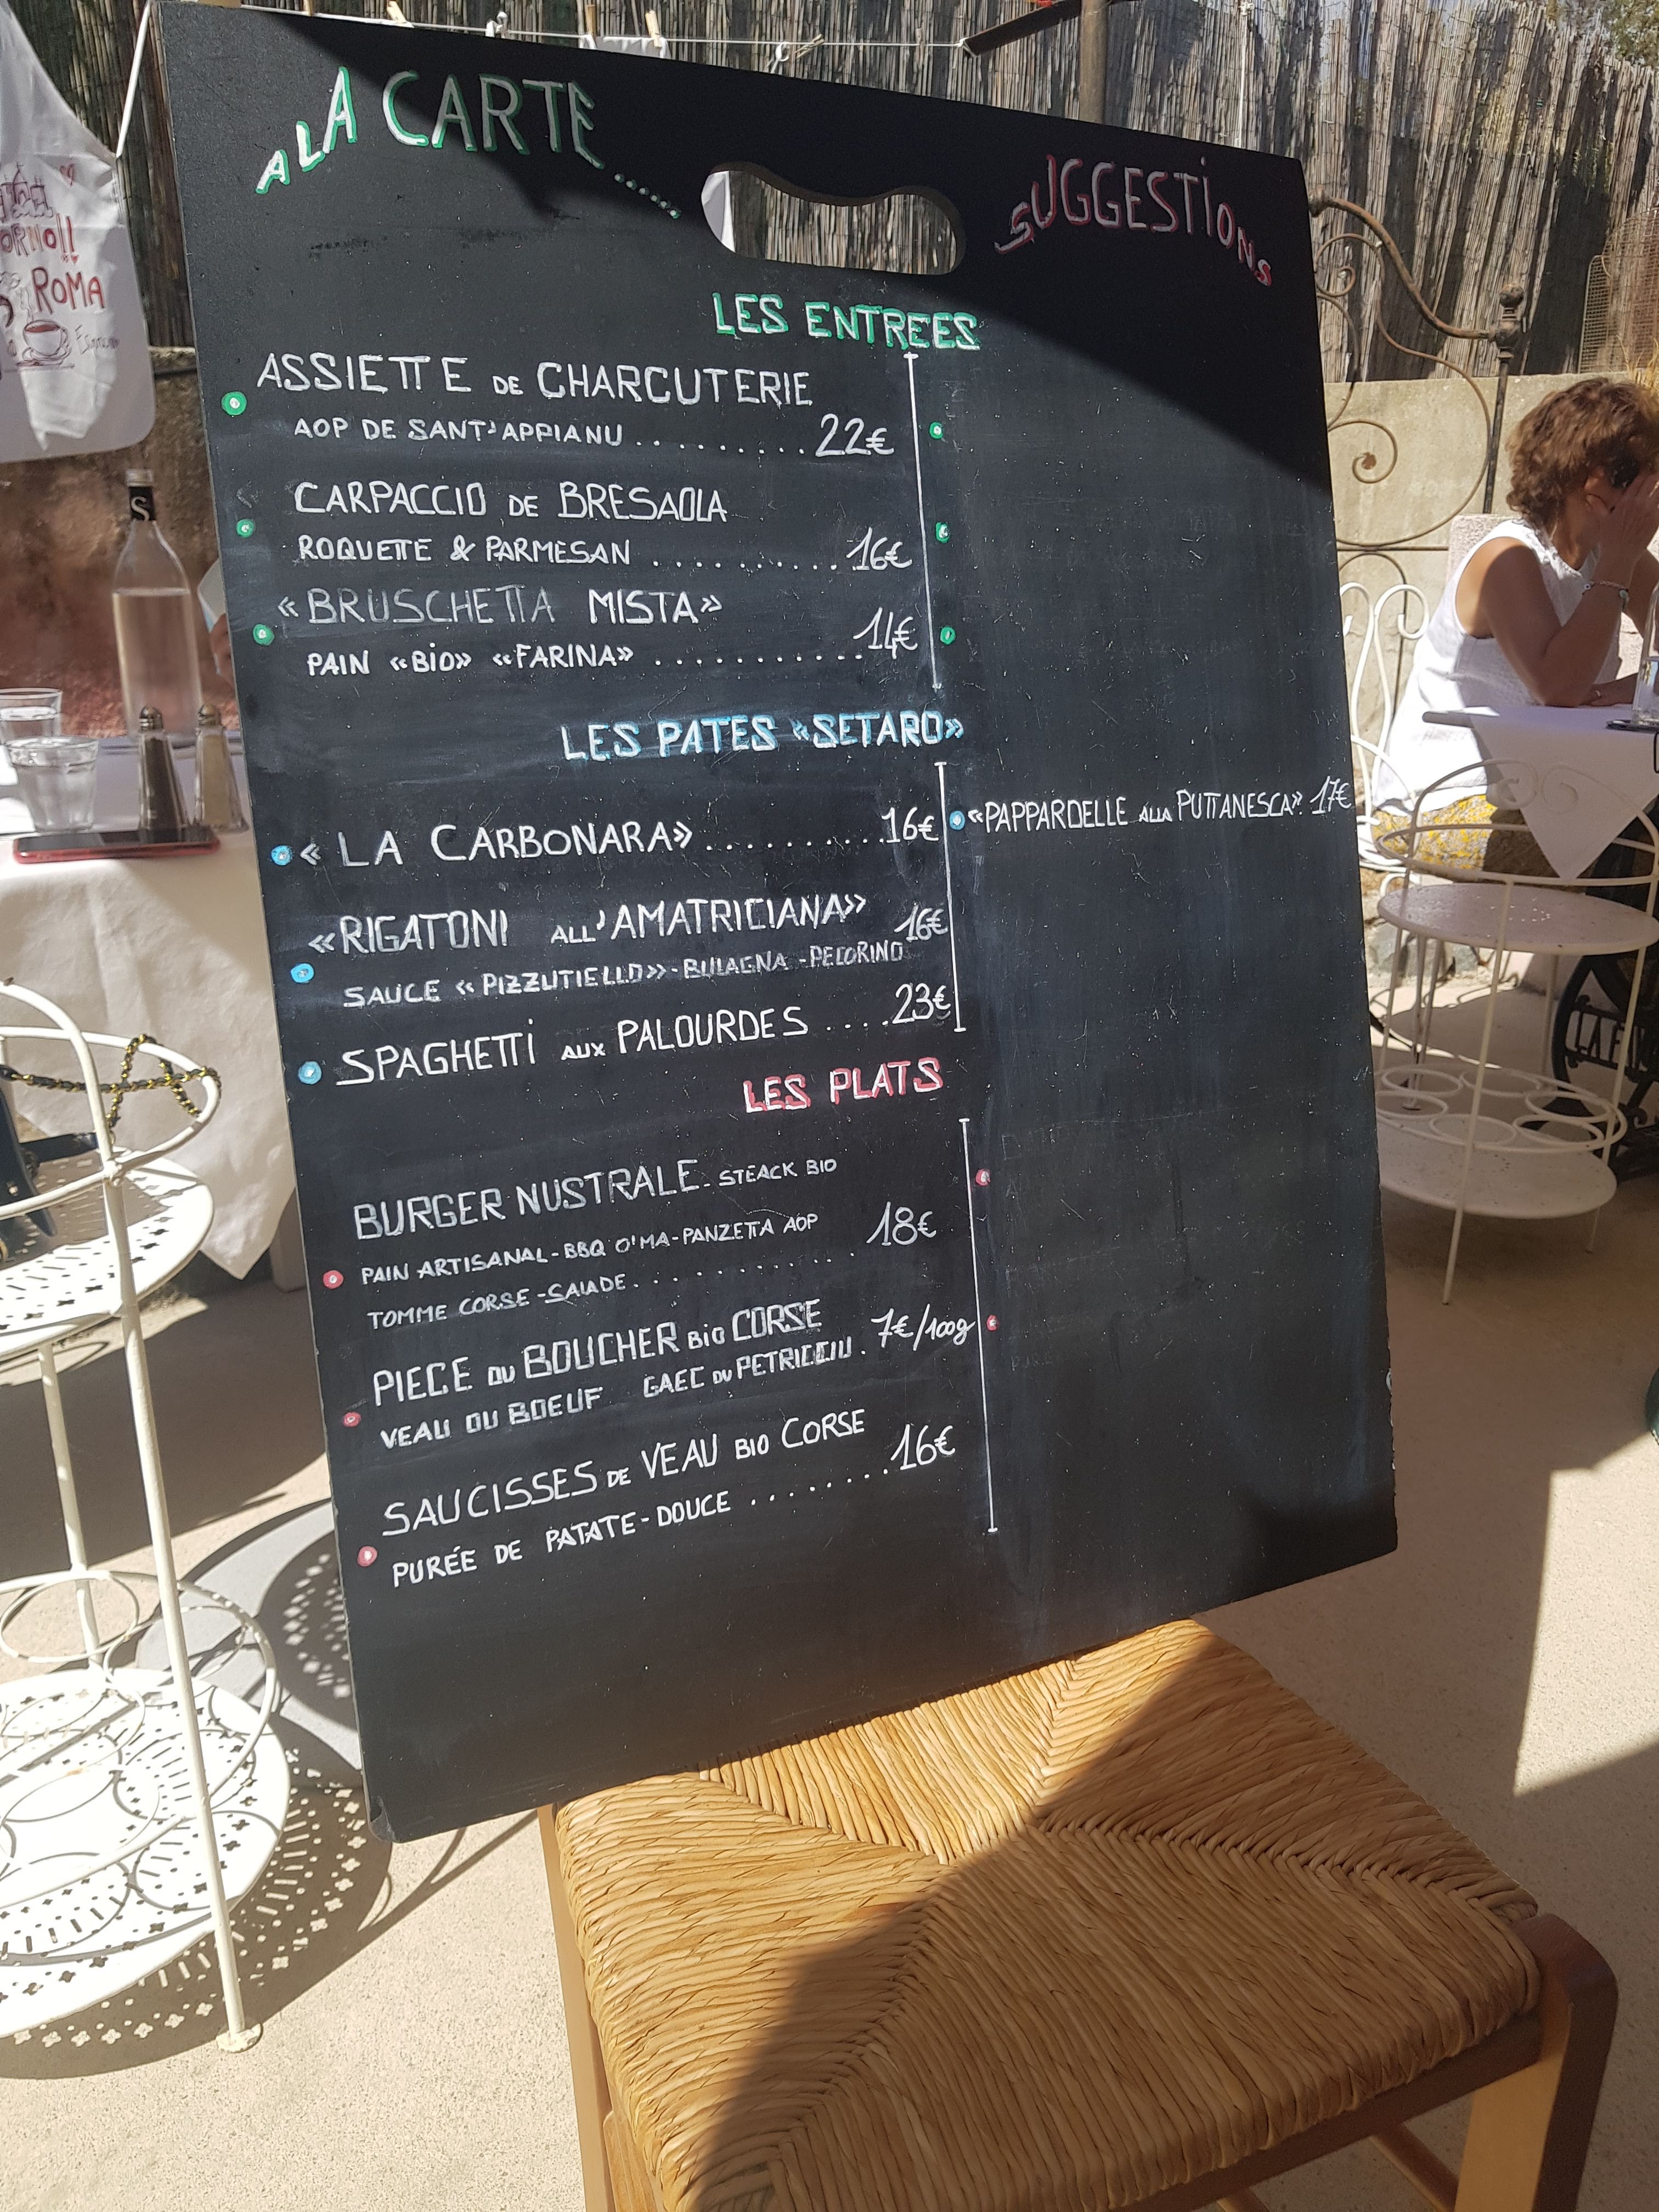 A LA CARTE.....
SUGGESTIONS
LES ENTREES
ASSIETTE DE CHARCUTERIE
AOP DE SANT'APPIANU........22€
CARPACCIO DE BRESAOLA
ROQUETTE & PARMESAN..........16€
«BRUSCHETTA MISTA»
PAIN «BIO» «FARINA»...........14€
LES PATES «SETARO»
«LA CARBONARA»..........16€
«PAPPARDELLE ALLA PUTTANESCA». 17€
«RIGATONI ALL'AMATRICIANA» 16€
SAUCE «PIZZUTIELLO»-BULAGNA-PECORINO
SPAGHETTI AUX PALOURDES....23€
LES PLATS
BURGER NUSTRALE-STEACK BIO
PAIN ARTISANAL-BBQ O'MA-PANZETTA AOP 18€
TOMME CORSE-SALADE...........
PIECE DU BOUCHER BIO CORSE 7€/100g
VEAU OU BOEUF GAEC DU PETRICCIU.
SAUCISSES DE VEAU BIO CORSE
PURÉE DE PATATE-DOUCE........16€
ROMA
S